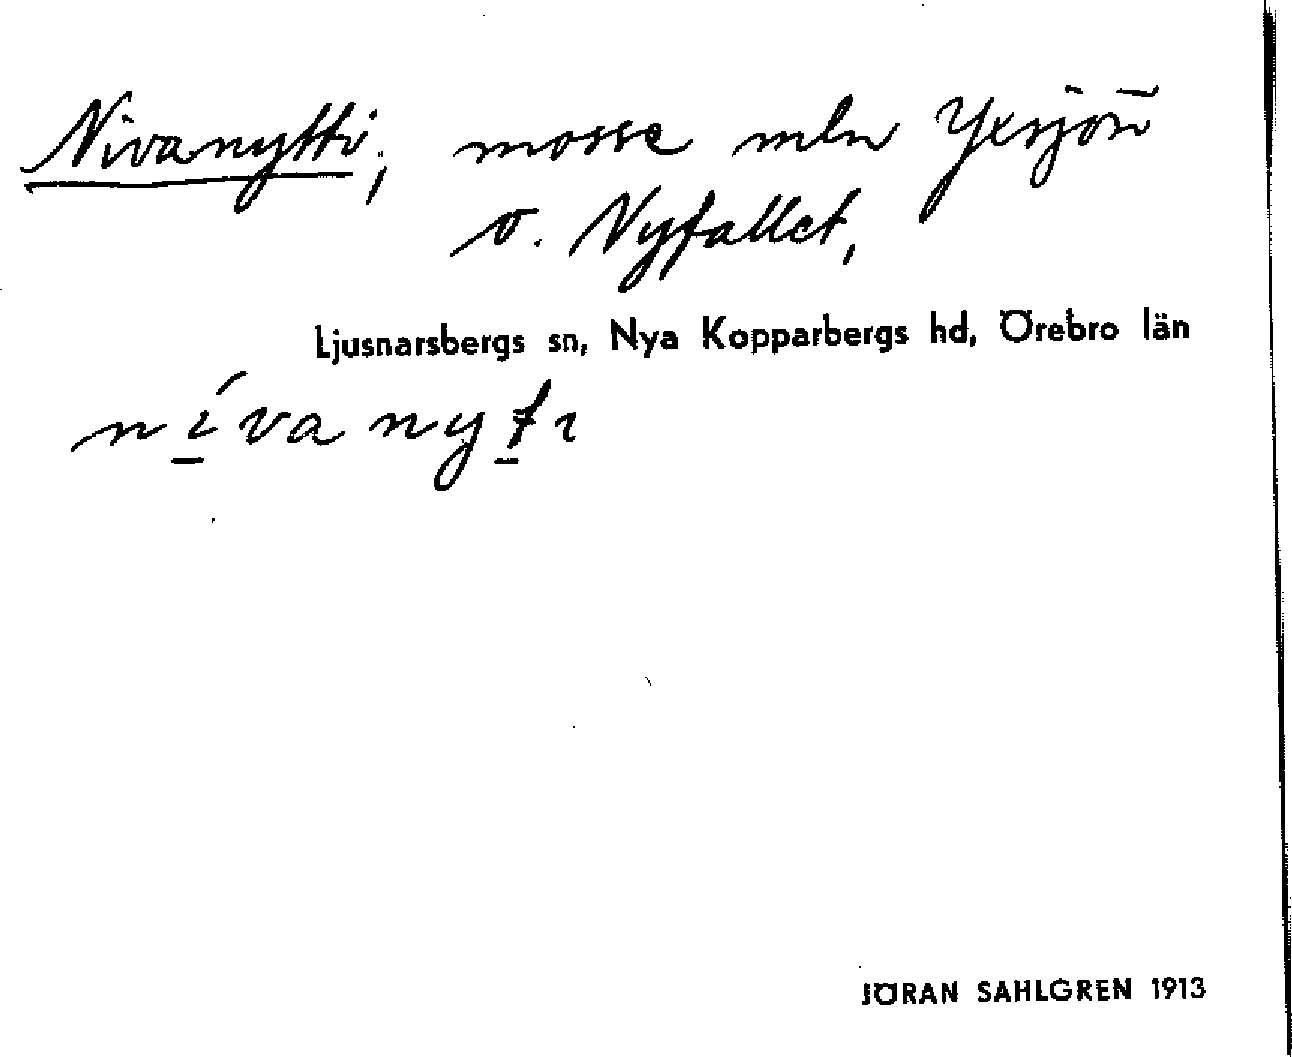 Nivanytti, mosse mln Yxsjön
o. Nyfallet,
Ljusnarsbergs sn, Nya Kopparbergs hd, Örebro län
ní̱va nyṯɩ
JÖRAN SAHLGREN 1913